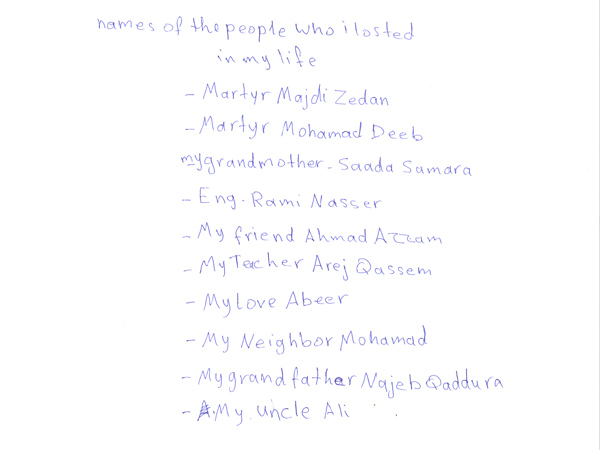 names of the people who i losted
in my life
- Martyr Majdi Zedan
- Martyr Mohamad Deeb
my grandmother - Saada Samara
- Eng. Rami Nasser
- My friend Ahmad Azzam
- My Teacher Arej Qassem
- My love Abeer
- My Neighbor Mohamad
- My grand father Najeb Qaddura
- My uncle Ali